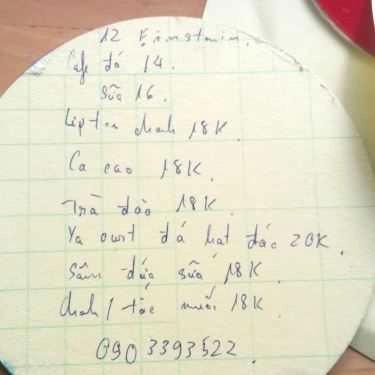 12 Einstein.
Cafe đá 14.
sữa 16.
Lipton chanh 18K.
Ca cao 18K.
Trà đào 18K.
Ya ourt đá hạt đác 20K.
Sâm dứa sữa 18K.
chanh / tắc muối 18K.
090 3393522.